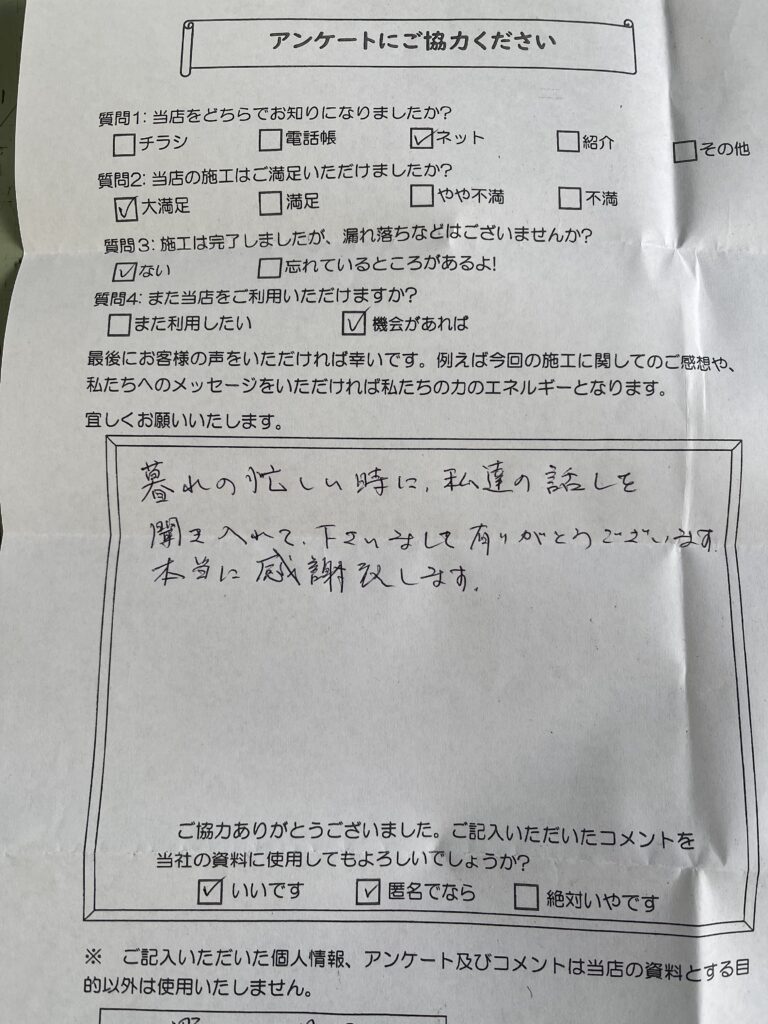 アンケートにご協力ください
質問1: 当店をどちらでお知りになりましたか?
□チラシ □電話帳 ☑ネット □紹介 □その他
質問2: 当店の施工はご満足いただけましたか?
☑大満足 □満足 □やや不満 □不満
質問3: 施工は完了しましたが、漏れ落ちなどはございませんか?
☑ない □忘れているところがあるよ!
質問4: また当店をご利用いただけますか?
□また利用したい ☑機会があれば
最後にお客様の声をいただければ幸いです。例えば今回の施工に関してのご感想や、
私たちへのメッセージをいただければ私たちの力のエネルギーとなります。
宜しくお願いいたします。
暮れの忙しい時に、私達の話しを
聞き入れて、下さいまして有りがとうございます。
本当に感謝致します。
ご協力ありがとうございました。ご記入いただいたコメントを
当社の資料に使用してもよろしいでしょうか?
☑いいです ☑匿名でなら □絶対いやです
※ ご記入いただいた個人情報、アンケート及びコメントは当店の資料とする目
的以外は使用いたしません。